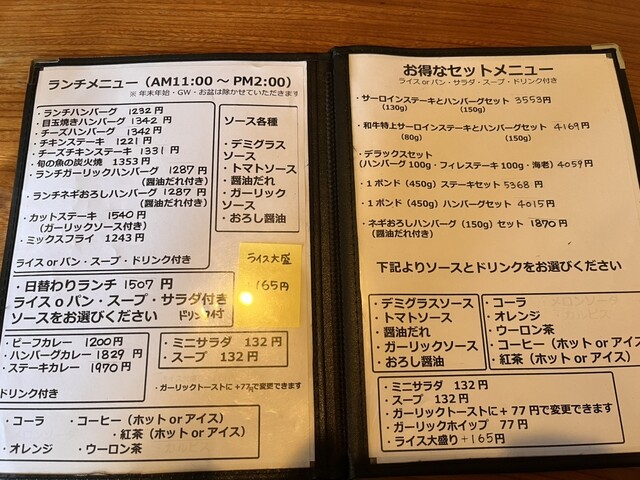 ランチメニュー（AM11:00 ～ PM2:00）
※ 年末年始・GW・お盆は除かせていただきます
・ランチハンバーグ 1232 円
・目玉焼きハンバーグ 1342 円
・チーズハンバーグ 1342 円
・チキンステーキ 1221 円
・チーズチキンステーキ 1331 円
・旬の魚の炭火焼 1353 円
・ランチガーリックハンバーグ 1287 円
（醤油だれ付き）
・ランチネギおろしハンバーグ 1287 円
（醤油だれ付き）
・カットステーキ 1540 円
（ガーリックソース付き）
・ミックスフライ 1243 円
ライス or パン・スープ・ドリンク付き
ソース各種
・デミグラス
ソース
・トマトソース
・醤油だれ
・ガーリック
ソース
・おろし醤油
ライス大盛
165円
・日替わりランチ 1507 円
ライス o パン・スープ・サラダ付き
ソースをお選びください ドリンク付
・ビーフカレー 1200 円
・ハンバーグカレー 1829 円
・ステーキカレー 1970 円
ドリンク付き
・ミニサラダ 132 円
・スープ 132 円
・ガーリックトーストに +77 円で変更できます
・コーラ ・コーヒー（ホット or アイス）
・紅茶（ホット or アイス）
・オレンジ ・ウーロン茶
お得なセットメニュー
ライス or パン・サラダ・スープ・ドリンク付き
・サーロインステーキとハンバーグセット 3553 円
(130g) (150g)
・和牛特上サーロインステーキとハンバーグセット 4169 円
(80g) (150g)
・デラックスセット
（ハンバーグ 100g・フィレステーキ 100g・海老）4059 円
・1 ポンド（450g）ステーキセット 5368 円
・1 ポンド（450g）ハンバーグセット 4015 円
・ネギおろしハンバーグ（150g）セット 1870 円
（醤油だれ付き）
下記よりソースとドリンクをお選びください
・デミグラスソース
・トマトソース
・醤油だれ
・ガーリックソース
・おろし醤油
・コーラ メロンソーダ
・オレンジ カルピス
・ウーロン茶
・コーヒー（ホット or アイス
・紅茶（ホット or アイス）
・ミニサラダ 132 円
・スープ 132 円
・ガーリックトーストに + 77 円で変更できます
・ガーリックホイップ 77 円
・ライス大盛り +165円